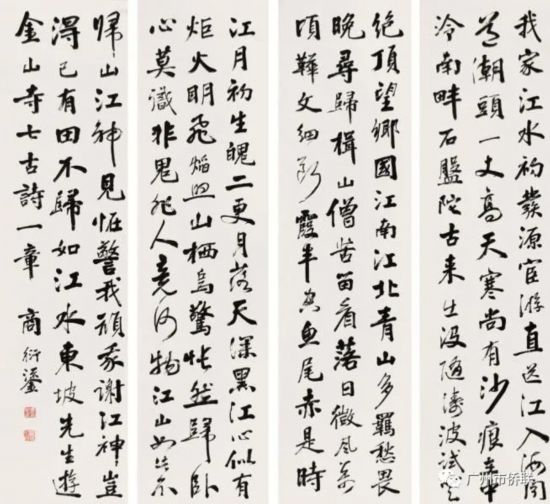 我家江水初發源宦游直送江入海聞
道潮頭一丈高天寒尚有沙痕在中
泠南畔石盤陀古来出沒隨濤波試登
絕頂望鄉國江南江北青山多羈愁畏
晚尋歸楫山僧苦留看落日微風萬
頃鞾文細斷霞半空魚尾赤是時
江月初生魄二更月落天深黑江心似有
炬火明飛焰照山栖烏驚悵然歸卧
心莫識非鬼非人竟何物江山如此不
歸山江神見怪警我頑我謝江神豈
得已有田不歸如江水東坡先生遊
金山寺七古詩一章 商衍鎏
广州市侨联